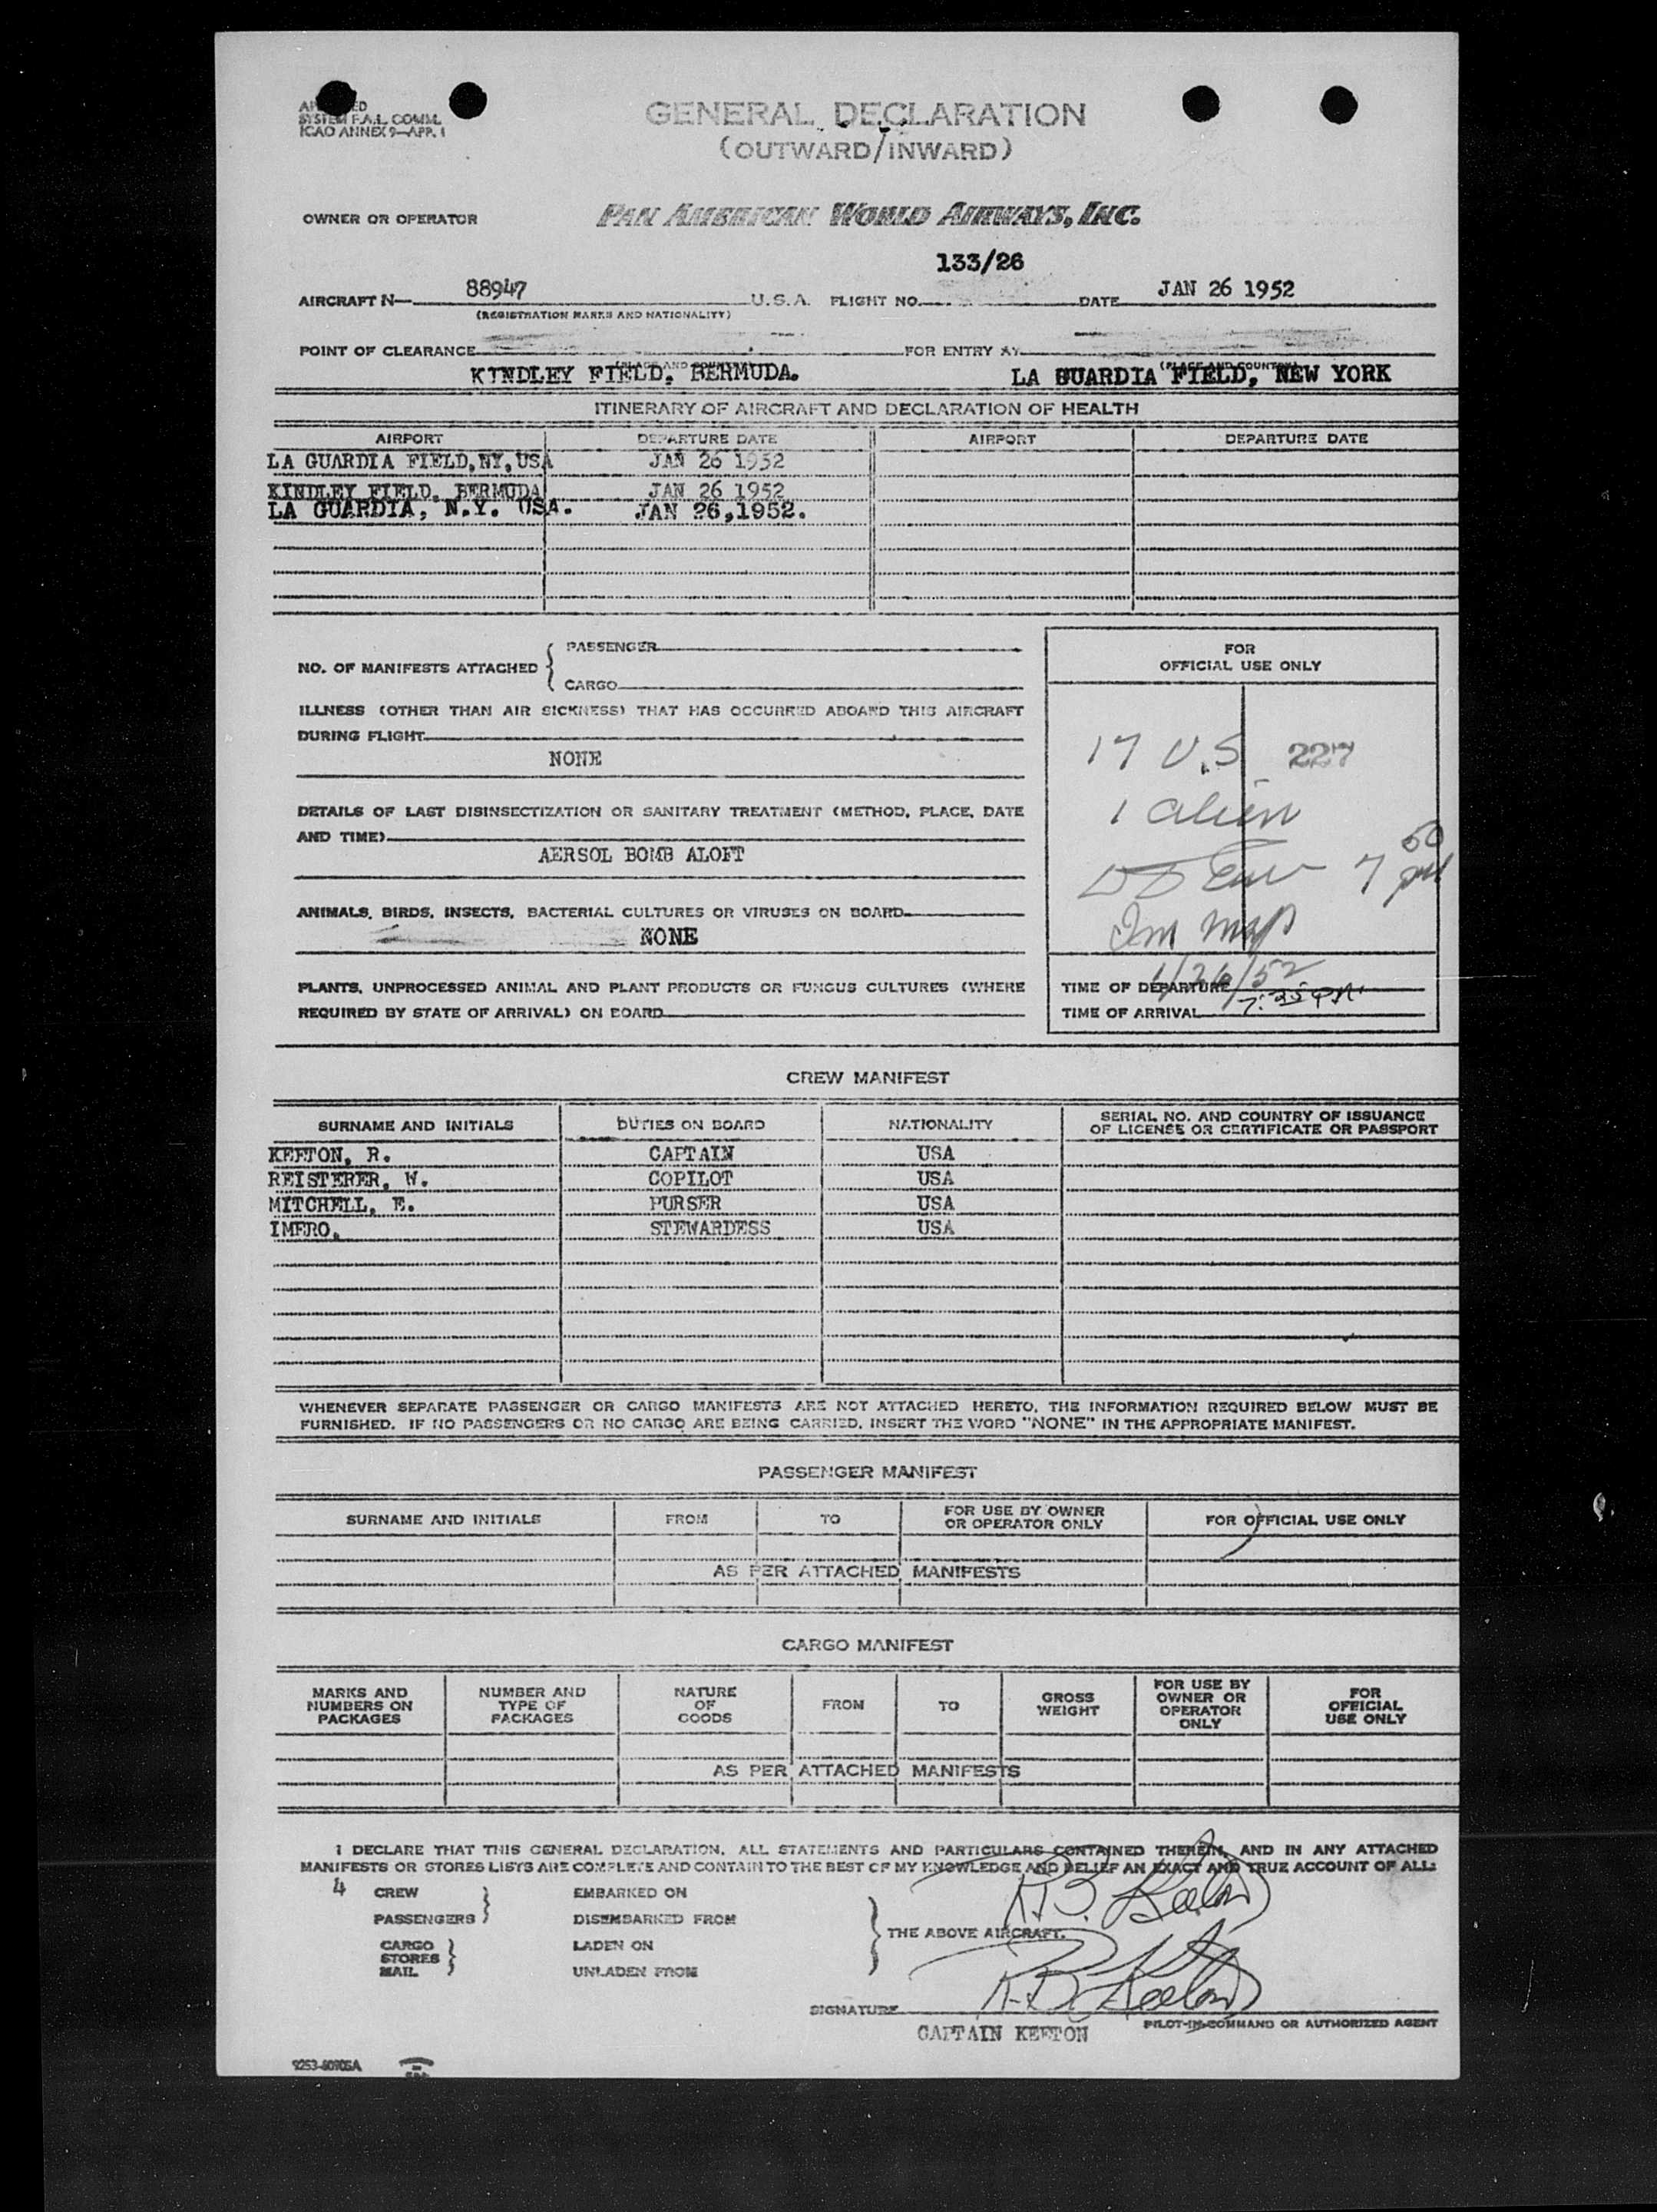 SYSTEM F.A.L. COMM.
ICAO ANNEX 9—APP. 1
GENERAL DECLARATION
(OUTWARD/INWARD)
OWNER OR OPERATOR PAN AMERICAN WORLD AIRWAYS, INC.
133/26
AIRCRAFT N— 88947 U.S.A. FLIGHT NO. DATE JAN 26 1952
(REGISTRATION MARKS AND NATIONALITY)
POINT OF CLEARANCE FOR ENTRY AT
KINDLEY FIELD, BERMUDA. LA GUARDIA FIELD, NEW YORK
ITINERARY OF AIRCRAFT AND DECLARATION OF HEALTH
AIRPORT DEPARTURE DATE AIRPORT DEPARTURE DATE
LA GUARDIA FIELD,NY,USA JAN 26 1952
KINDLEY FIELD, BERMUDA JAN 26 1952
LA GUARDIA, N.Y. USA. JAN 26,1952.
NO. OF MANIFESTS ATTACHED { PASSENGER
CARGO
ILLNESS (OTHER THAN AIR SICKNESS) THAT HAS OCCURRED ABOARD THIS AIRCRAFT
DURING FLIGHT
NONE
DETAILS OF LAST DISINSECTIZATION OR SANITARY TREATMENT (METHOD, PLACE, DATE
AND TIME)
AERSOL BOMB ALOFT
ANIMALS, BIRDS, INSECTS, BACTERIAL CULTURES OR VIRUSES ON BOARD
NONE
PLANTS, UNPROCESSED ANIMAL AND PLANT PRODUCTS OR FUNGUS CULTURES (WHERE
REQUIRED BY STATE OF ARRIVAL) ON BOARD
FOR
OFFICIAL USE ONLY
17 U.S 227
1 alien
7 50 pm
1/26/52
TIME OF DEPARTURE
7:35 PM
TIME OF ARRIVAL
CREW MANIFEST
SURNAME AND INITIALS DUTIES ON BOARD NATIONALITY SERIAL NO. AND COUNTRY OF ISSUANCE
OF LICENSE OR CERTIFICATE OR PASSPORT
KEETON, R. CAPTAIN USA
REISTERER, W. COPILOT USA
MITCHELL, E. PURSER USA
IMERO, STEWARDESS USA
WHENEVER SEPARATE PASSENGER OR CARGO MANIFESTS ARE NOT ATTACHED HERETO, THE INFORMATION REQUIRED BELOW MUST BE
FURNISHED. IF NO PASSENGERS OR NO CARGO ARE BEING CARRIED, INSERT THE WORD "NONE" IN THE APPROPRIATE MANIFEST.
PASSENGER MANIFEST
SURNAME AND INITIALS FROM TO FOR USE BY OWNER
OR OPERATOR ONLY FOR OFFICIAL USE ONLY
AS PER ATTACHED MANIFESTS
CARGO MANIFEST
MARKS AND
NUMBERS ON
PACKAGES NUMBER AND
TYPE OF
PACKAGES NATURE
OF
GOODS FROM TO GROSS
WEIGHT FOR USE BY
OWNER OR
OPERATOR
ONLY FOR
OFFICIAL
USE ONLY
AS PER ATTACHED MANIFESTS
I DECLARE THAT THIS GENERAL DECLARATION, ALL STATEMENTS AND PARTICULARS CONTAINED THEREIN, AND IN ANY ATTACHED
MANIFESTS OR STORES LISTS ARE COMPLETE AND CONTAIN TO THE BEST OF MY KNOWLEDGE AND BELIEF AN EXACT AND TRUE ACCOUNT OF ALL:
4 CREW EMBARKED ON
PASSENGERS DISEMBARKED FROM
R.B. Keeton
THE ABOVE AIRCRAFT.
CARGO LADEN ON
STORES
MAIL UNLADEN FROM
R.B. Keeton
SIGNATURE
CAPTAIN KEETON PILOT-IN-COMMAND OR AUTHORIZED AGENT
9253-60905A